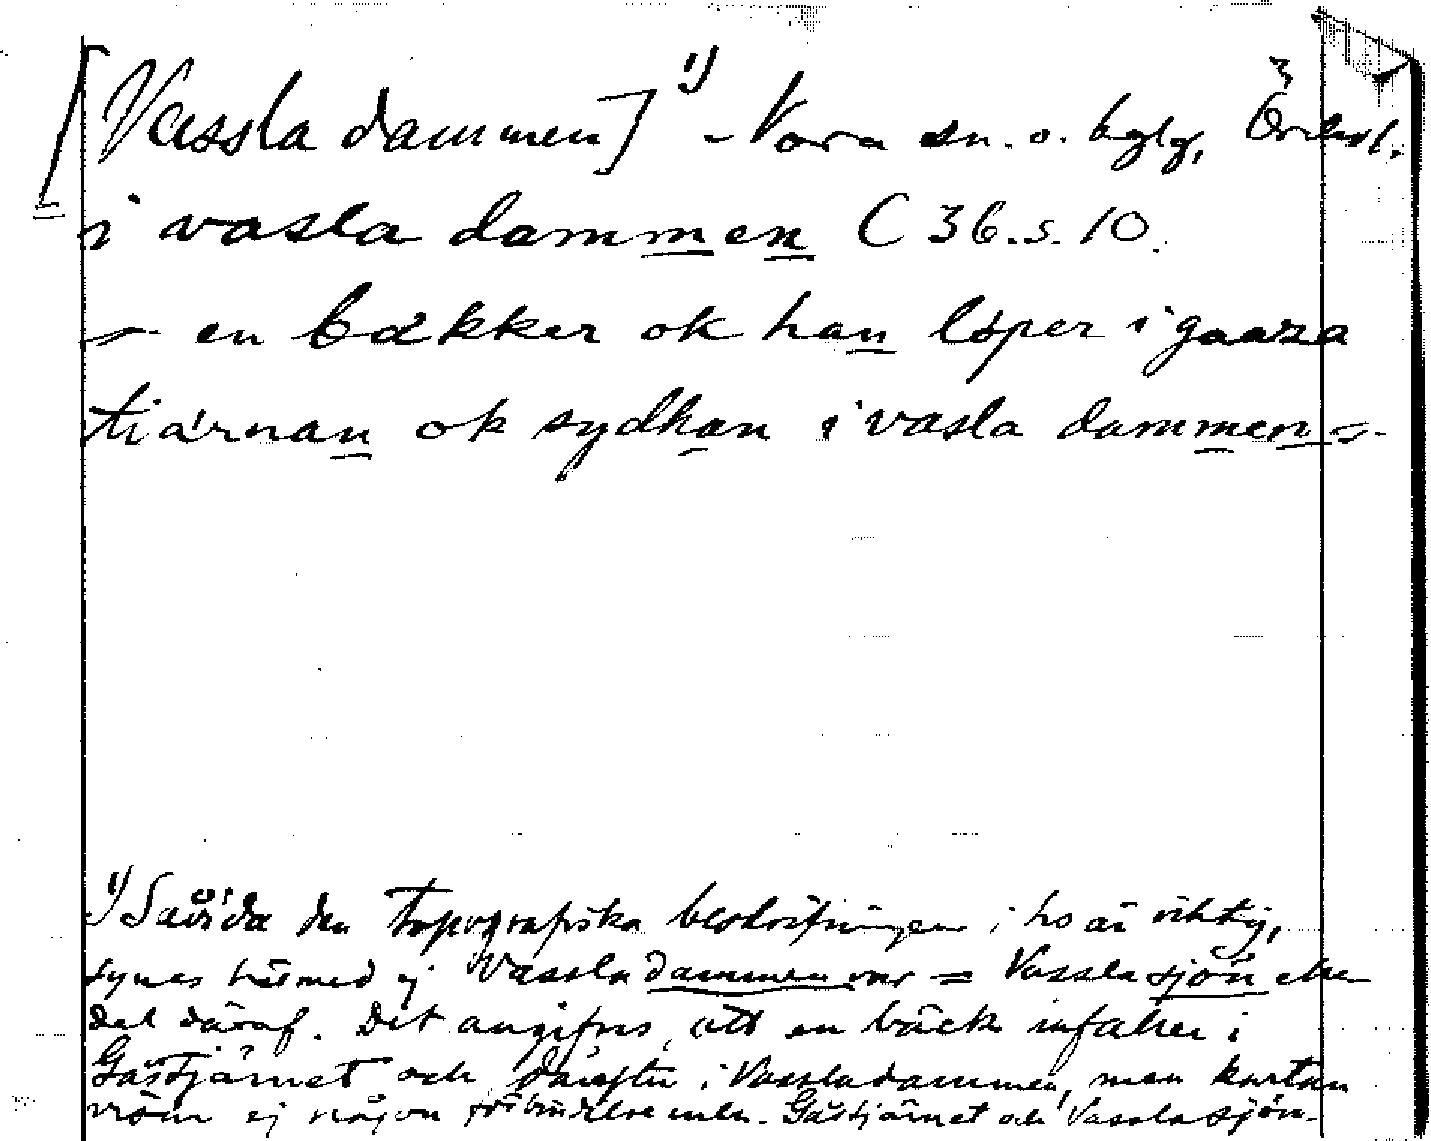 [Vassla dammen] 1) - Nora sn. o. bglg, Örebrol.
i vasla dammen C 36. s. 10.
= en bækker ok han löper i gaasa
tiärnan ok sydhan i vasla dammen =
1) Såvida den topografiska beskrifningen i hs är riktig,
synes härmed ej Vassladammen var = Vasslasjön eller
del däraf. Det angifves, att en bäck infaller i
Gåstjärnet och därefter i Vassladammen, men kartan
visar ej någon förbindelse mellan Gåstjärnet och Vasslasjön.